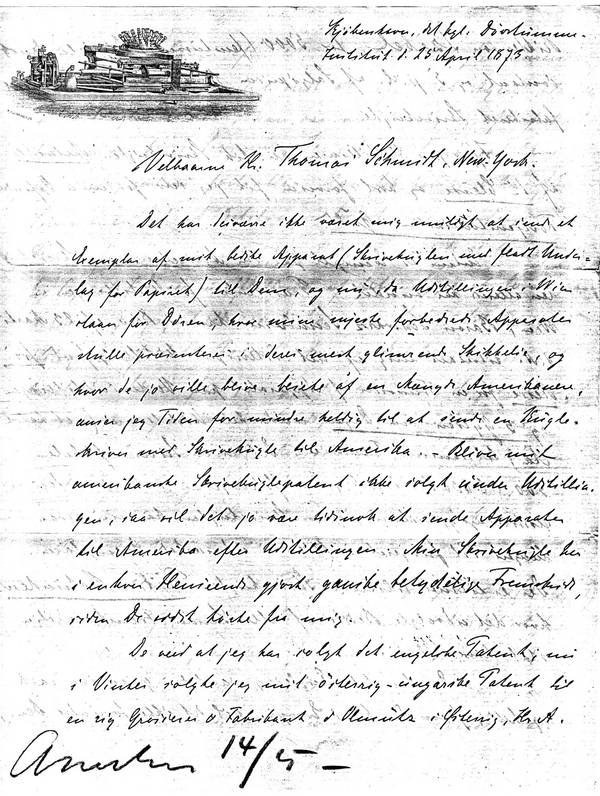 Kjøbenhavn, det kgl. Døvstumme-
Institut d. 25 April 1873
Velbaarne Hr. Thomas Schmidt, New-York.
Det har desværre ikke været mig muligt at sende et
Exemplar af mit bedste Apparat (Skrivekuglen med fladt Under-
lag for Papiret) til Dem, og nu, da Udstillingen i Wien
staaer for Døren, hvor mine nyeste forbedrede Apparater
skulle præsenteres i deres mest glimrende Skikkelse, og
hvor de jo ville blive beseete af en Mængde Amerikanere,
anser jeg Tiden for mindre heldig til at sende en Kugle-
skriver med Skrivekugle til Amerika. – Bliver mit
amerikanske Skrivekuglepatent ikke solgt under Udstillin-
gen, saa vil det jo være tidsnok at sende Apparater
til Amerika efter Udstillingen. Min Skrivekugle har
i enhver Henseende gjort ganske betydelige Fremskridt,
siden De sidst hørte fra mig.
De veed at jeg har solgt det engelske Patent; nu
i Vinter solgte jeg mit österrig-ungarske Patent til
en rig Grosserer & Fabrikant i Olmütz i Østerrig, Hr. A.
14/5 –